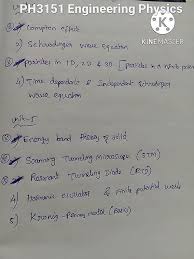 PH3151 Engineering Physics
KINEMASTER
1) Compton effect
2) Schrodinger wave equation
3) particles in 1D, 2D & 3D [particle in a infinite
4) Time dependent & independent Schrodinger
wave equation
Unit-5
Energy band theory of solid
Scanning Tunneling Microscope (STM)
Resonant Tunneling Diode (RTD)
4) Harmonic oscillator & finite potential well
5) Kronig-Penney model